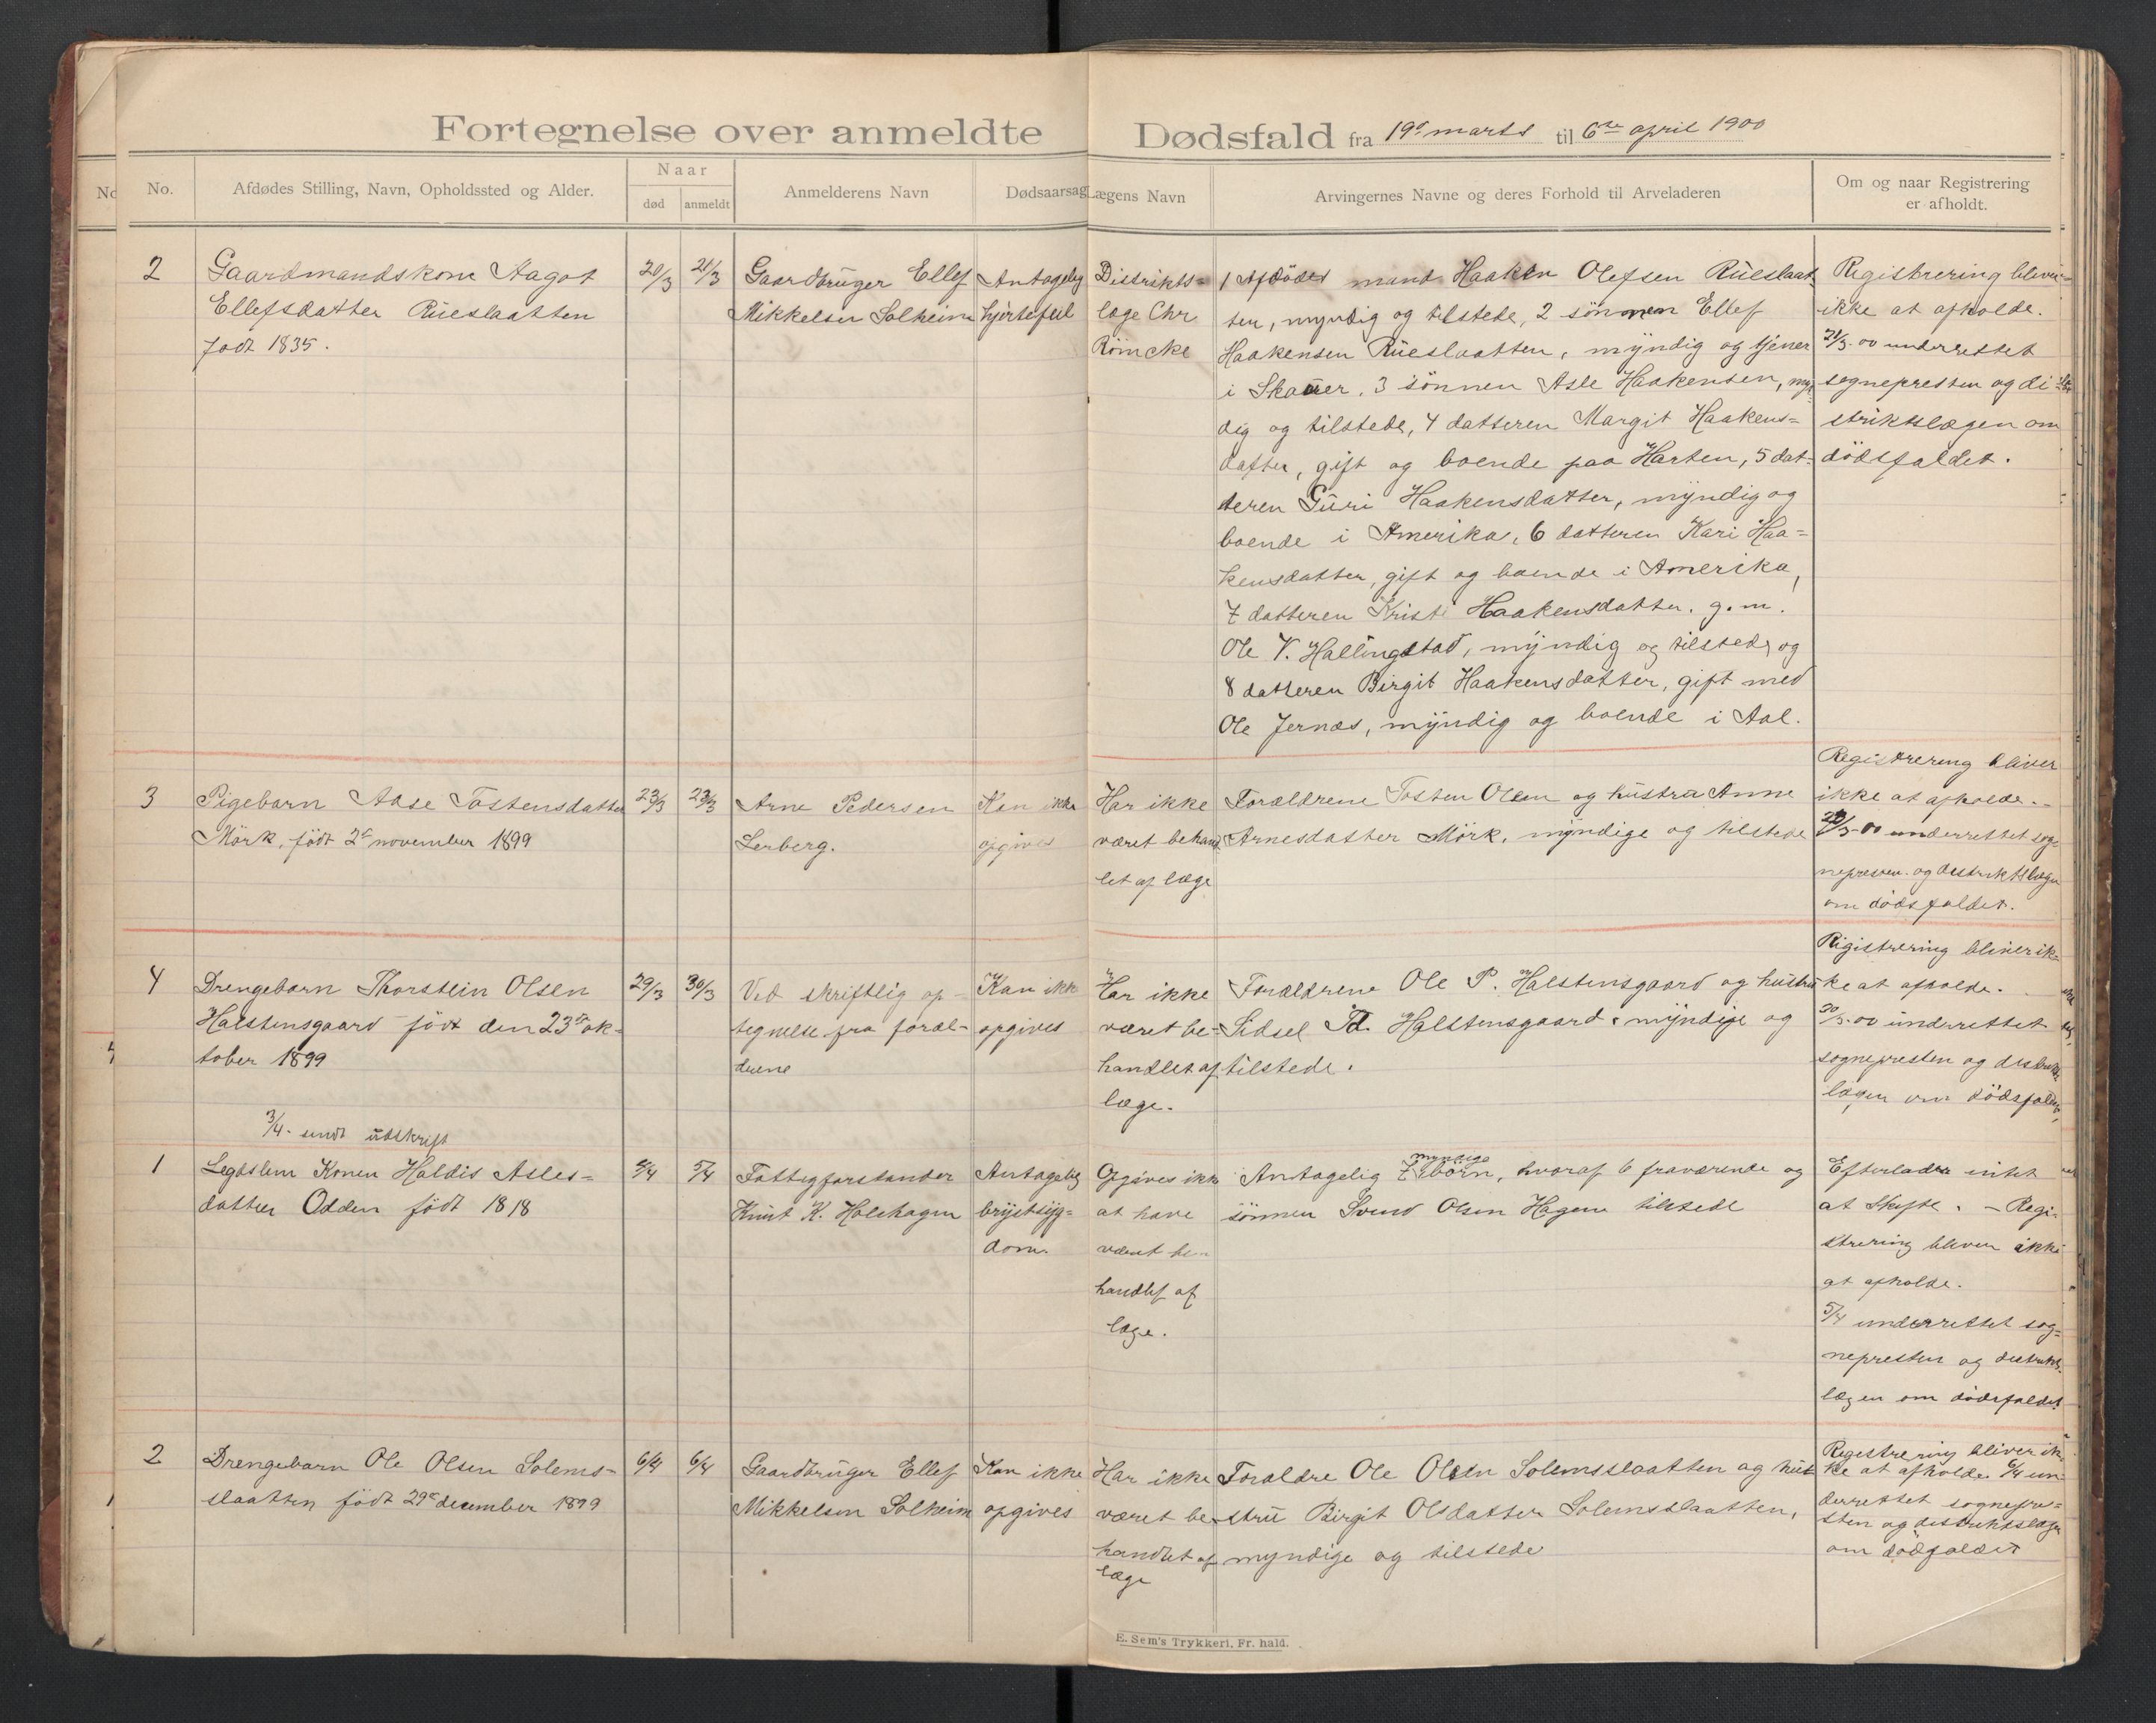 Fortegnelse over anmeldte Dødsfald fra 19de marts til 6te april 1900
No.
Afdødes Stilling, Navn, Opholdssted og Alder.
Naar
død
anmeldt
Anmelderens Navn
Dødsaarsag
Lægens Navn
Arvingernes Navne og deres Forhold til Arveladeren
Om og naar Registrering
er afholdt.
2
Gaardmandskone Aagot
Ellefsdatter Rueslaatten
født 1835.
20/3
21/3
Gaardbruger Ellef
Mikkelsen Solheim
Antagelig
hjertefeil
Distrikts=
læge Chr
Römcke
1 Afdødes mand Haaken Olefsen Rueslaat
ten, myndig og tilstede, 2 sönnen Ellef
Haakensen Rueslaatten, myndig og tjener
i Skauer, 3 sönnen Asle Haakensen, myn
dig og tilstede, 4 datteren Margit Haakens=
datter, gift og boende paa Harten, 5 dat=
teren Guri Haakensdatter, myndig og
boende i Amerika, 6 datteren Kari Haa=
kensdatter, gift og boende i Amerika,
7 datteren Kristi Haakensdatter, g. m.
Ole V. Hallingstad, myndig og tilstede, og
8 datteren Birgit Haakensdatter, gift med
Ole Jernæs, myndig og boende i Aal.
Registrering bliver
ikke at afholde.
21/3-00 underrettet
sognepresten og di=
striktslægen om
dödsfaldet.
3
Pigebarn Aase Tostensdatter
Mörk, født 2de november 1899
23/3
23/3
Arne Pedersen
Lerberg.
Kan ikke
opgives
Har ikke
været behand
let af læge
Forældrene Tosten Olsen og hustru Anne
Arnesdatter Mörk, myndige og tilstede
Registrering bliver
ikke at afholde.
23/3-00 underrettet sog=
nepresten og distriktslægen
om dödsfaldet.
4
Drengebarn Thorstein Olsen
Halstensgaard født den 23de ok=
tober 1899
29/3
30/3
Ved skriftlig op=
tegnelse fra foræl=
drene
Kan ikke
opgives
Har ikke
været be=
handlet af
læge.
Forældrene Ole P. Halstensgaard og hustru
Sidsel Td. Halstensgaard, myndige og
tilstede.
Registrering bliver ik=
ke at afholde.
30/3-00 underrettet
sognepresten og distrikts
lægen om dödsfaldet
3/4. sendt udskrift
1
Legdslem Konen Haldis Asles=
datter Odden født 1818
5/4
Fattigforstander
Knut K. Holehagen
Antagelig
brystsyg=
dom.
Opgives ikke
at have
været be
handlet af
læge.
Antagelig 7 myndige börn, hvoraf 6 fraværende og
sönnen Svend Olsen Hagene tilstede
Efterlader intet
at Skifte. - Regi=
strering bliver ikke
at afholde.
5/4 underrettet sog=
nepresten og distrikts=
lægen om dödsfaldet
2
Drengebarn Ole Olsen Solems=
slaatten født 29de december 1899
6/4
6/4
Gaardbruger Ellef
Mikkelsen Solheim
Kan ikke
opgives
Har ikke
været be=
handlet af
læge
Forældre Ole Olsen Solemsslaatten og hu=
stru Birgit Olsdatter Solemsslaatten,
myndige og tilstede
Registrering bliver ik=
ke at afholde. 6/4 un=
derrettet sognepre=
sten og distriktslægen
om dödsfaldet
E. Sem's Trykkeri, Fr. hald.